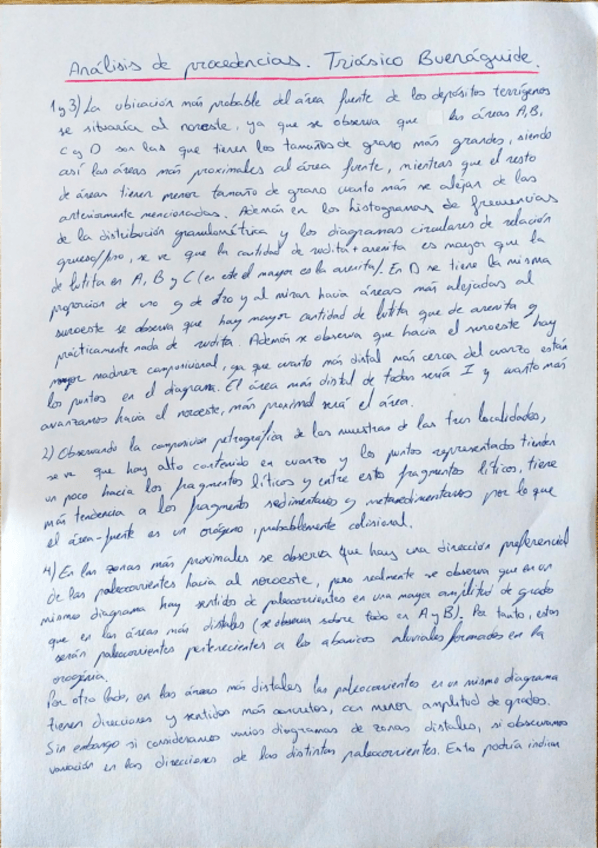 Análisis de procedencias. Triásico Buenáguide.
1 y 3) La ubicación más probable del área fuente de los depósitos terrígenos
se situaría al noroeste, ya que se observa que las áreas A, B,
C y D son las que tienen los tamaños de grano más grandes, siendo
así las áreas más proximales al área fuente, mientras que el resto
de áreas tienen menor tamaño de grano cuanto más se alejan de las
anteriormente mencionadas. Además en los histogramas de frecuencias
de la distribución granulométrica y los diagramas circulares de relación
grueso/fino, se ve que la cantidad de rudita + arenita es mayor que la
de lutita en A, B y C (en este el mayor es la arenita). En D se tiene la misma
proporción de uno y de otro y al mirar hacia áreas más alejadas al
suroeste se observa que hay mayor cantidad de lutita que de arenita y
prácticamente nada de rudita. Además se observa que hacia el suroeste hay
mayor madurez composicional, ya que cuanto más distal más cerca del cuarzo están
los puntos en el diagrama. El área más distal de todas sería I y cuanto más
avanzamos hacia el noroeste, más proximal será el área.
2) Observando la composición petrográfica de las muestras de las tres localidades,
se ve que hay alto contenido en cuarzo y los puntos representados tienden
un poco hacia los fragmentos líticos y entre estos fragmentos líticos, tiene
más tendencia a los fragmentos sedimentarios y metasedimentarios por lo que
el área-fuente es un orógeno, probablemente colisional.
4) En las zonas más proximales se observa que hay una dirección preferencial
de las paleocorrientes hacia al noroeste, pero realmente se observa que en un
mismo diagrama hay sentidos de paleocorrientes en una mayor amplitud de grados
que en las áreas más distales (se observa sobre todo en A y B). Por tanto, estas
serán paleocorrientes pertenecientes a los abanicos aluviales formados en la
orogenia.
Por otro lado, en las áreas más distales las paleocorrientes en un mismo diagrama
tienen direcciones y sentidos más concretos, con menor amplitud de grados.
Sin embargo si consideramos varios diagramas de zonas distales, si observamos
variación en las direcciones de las distintas paleocorrientes. Esto podría indicar